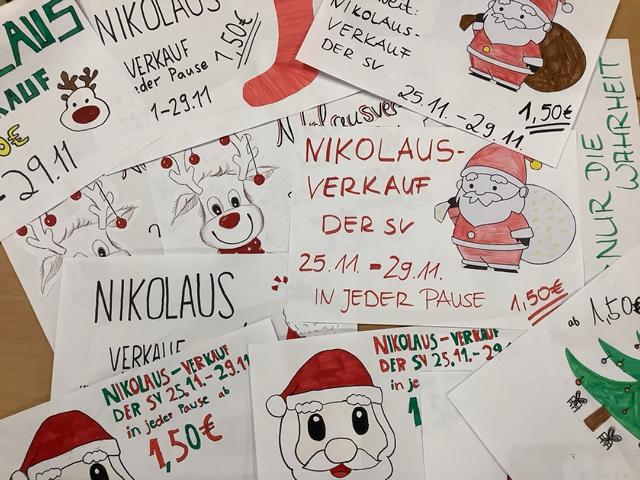 NIKOLAUS
VERKAUF
jeder Pause
1,50€
1-29.11
-29.11
NIKOLAUS-
VERKAUF
DER SV
25.11.-29.11.
1,50€
NUR DIE
WAHRHEIT
NIKOLAUS-
VERKAUF
DER SV
25.11.-29.11.
IN JEDER PAUSE
1,50€
NIKOLAUS
VERKAUF
ab 1,50€
NIKOLAUS-VERKAUF
DER SV 25.11.-29.11
in jeder Pause ab
1,50€
NIKOLAUS-VERKAUF
DER SV 25.11.-29
in je